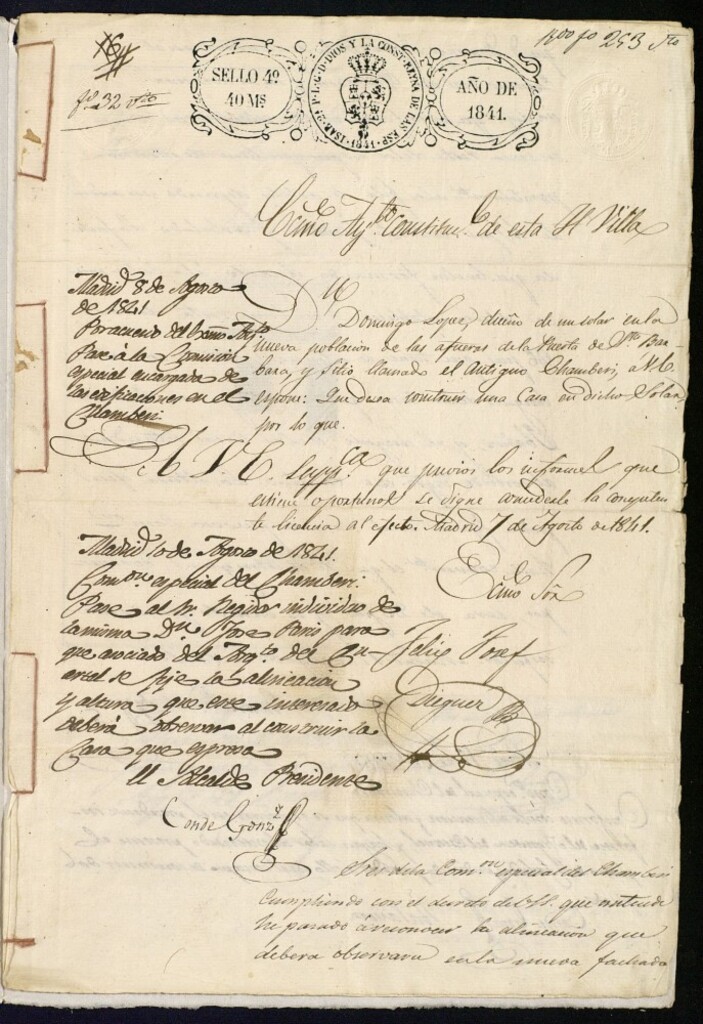 fº 32 vto
SELLO 4º
40 Ms
ISAB. 2ª P. L. G. D. DIOS Y LA CONST. REYNA DE LAS ESP.
1841
AÑO DE
1841.
fo 253 vto
Ecmo Ayto Constitucl de esta H Villa
Madrid 8 de Agosto
de 1841
Por acuerdo del Excmo Ayto
Pase à la Comision
especial encargada de
las edificaciones en el
Chamberi
Dn
Domingo Lopez, dueño de un solar en la
nueva poblacion de las afueras de la Puerta de Sta Bar-
bara, y sitio llamado el Antiguo Chamberi, a V. E.
espone: Que desea construir una Casa en dicho Solar,
por lo que.
A V. E. Suppca que previos los informes que
estime oportunos se digne concederle la competen-
te licencia al efecto. Madrid 7 de Agosto de 1841.
Ecmo Sor
Madrid 10 de Agosto de 1841.
Comon especial del Chamberi.
Pase al Sr. Regidor individuo de
la misma Dn Jose Paris para
que asociado del Arqto. del Cu-
artel se fije la alineacion
y altura que este interesado
deberá observar al construir la
Casa que espresa
El Alcalde Presidente
Felix Josef
Dieguez
Conde Gonzz
Sres de la Comon especial del Chamberi
Cumpliendo con el decreto de V.S. que antecede
he pasado à reconocer la alineacion que
debera observarse en la nueva fachada